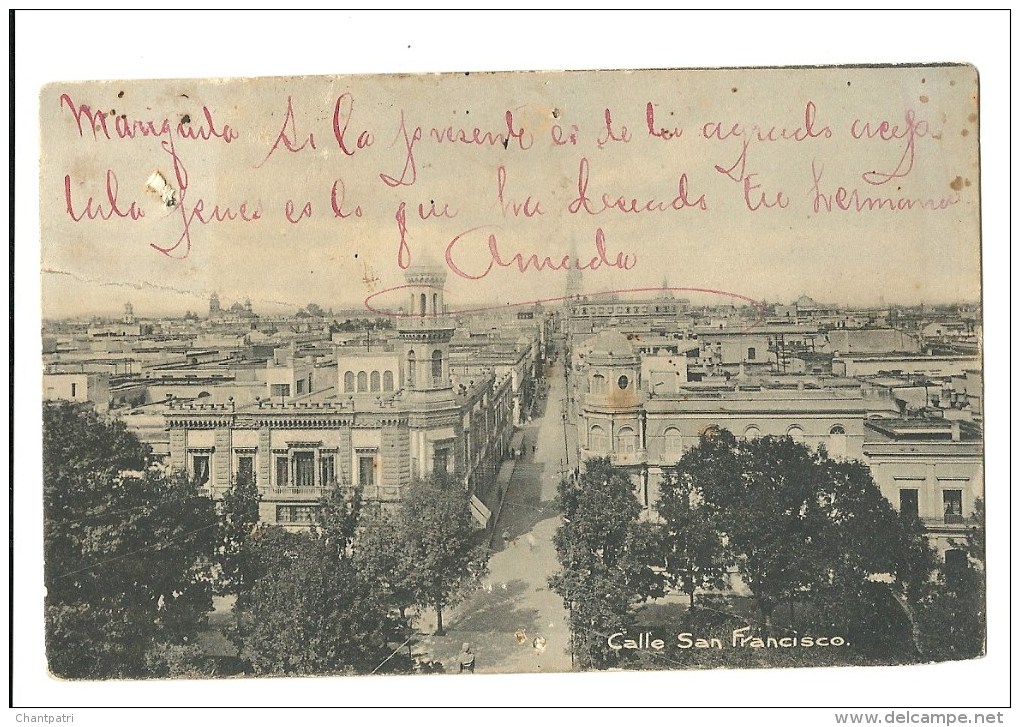 Margada Si la presente es de tu agrado acep
tala pues es lo que ha deseado tu hermana
Amada
Calle San Francisco.
Chantpatri
www.delcampe.net